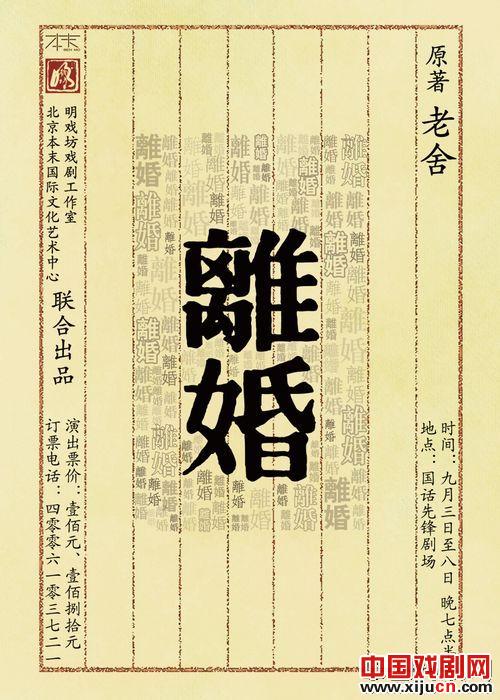 原著 老舍
时间：九月三日至八日 晚七点半
地点：国话先锋剧场
離婚
明戏坊戏剧工作室
北京本末国际文化艺术中心
联合出品
演出票价：壹佰元、壹佰捌拾元
订票电话：四零零六一零三七二一
中国戏剧网
www.xijucn.com